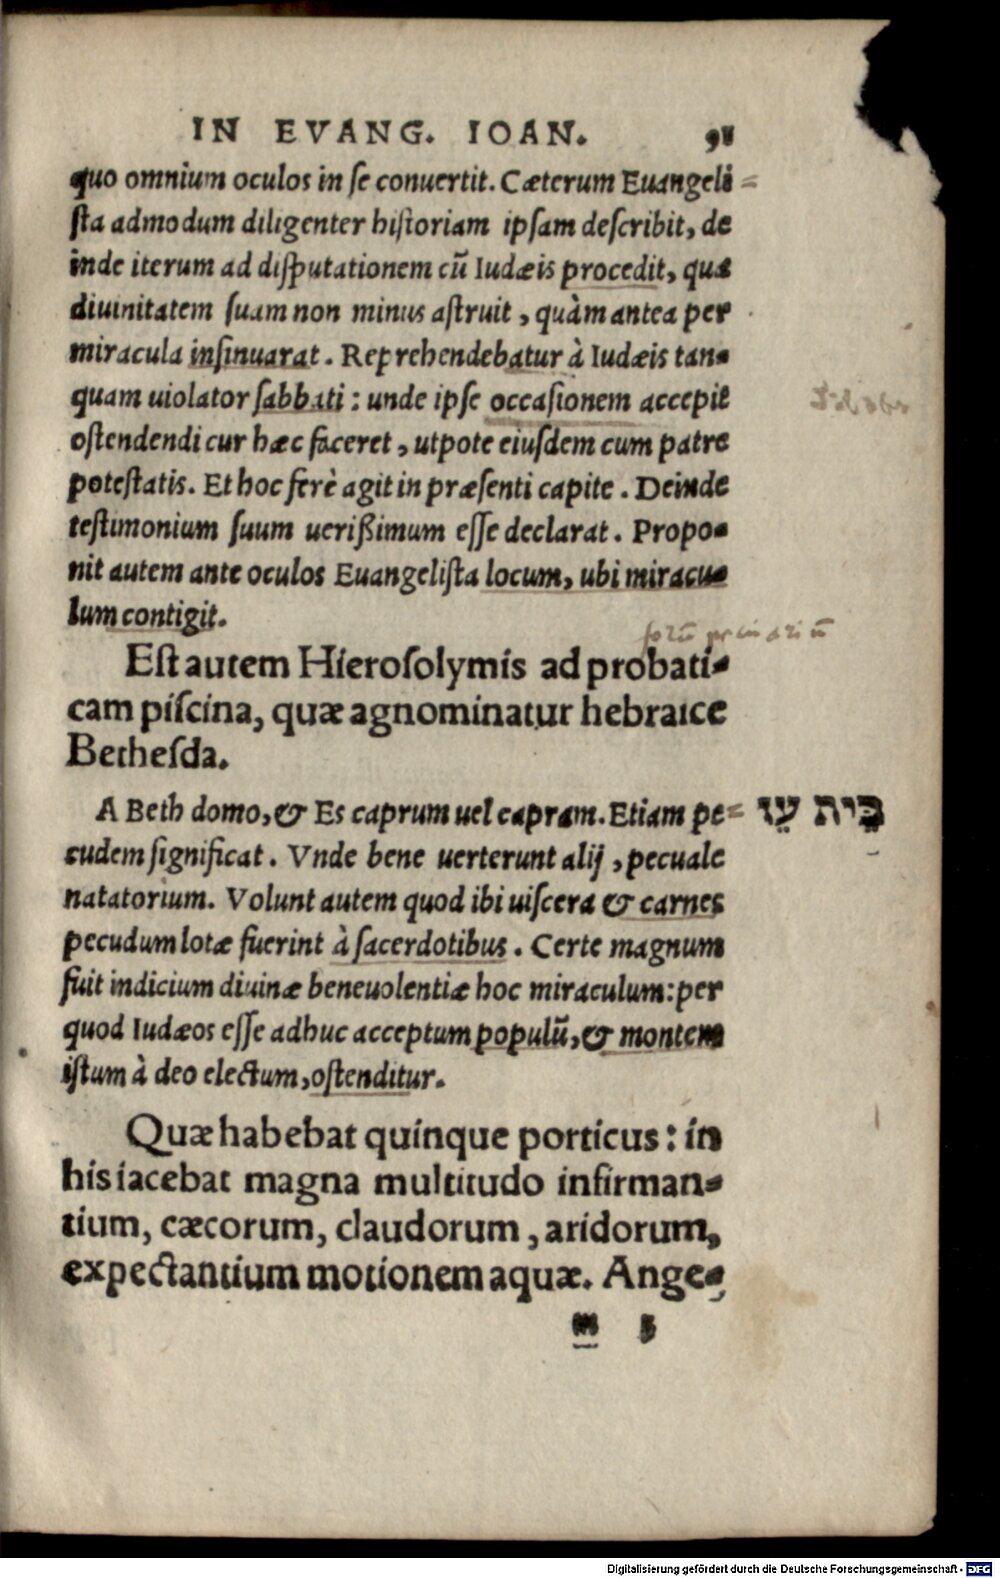 IN EVANG. IOAN. 91
quo omnium oculos in se conuertit. Cæterum Euangeli=
sta admodum diligenter historiam ipsam describit, de
inde iterum ad disputationem cū Iudæis procedit, qua
diuinitatem suam non minus astruit, quàm antea per
miracula insinuarat. Reprehendebatur à Iudæis tan=
quam uiolator sabbati: unde ipse occasionem accepit
ostendendi cur hæc faceret, utpote eiusdem cum patre
potestatis. Et hoc ferè agit in præsenti capite. Deinde
testimonium suum uerißimum esse declarat. Propo=
nit autem ante oculos Euangelista locum, ubi miracu=
lum contigit.
Est autem Hierosolymis ad probati=
cam piscina, quæ agnominatur hebraice
Bethesda.
A Beth domo, & Es caprum uel capram. Etiam pe= בית עז
cudem significat. Vnde bene uerterunt alij, pecuale
natatorium. Volunt autem quod ibi uiscera & carnes
pecudum lotæ fuerint à sacerdotibus. Certe magnum
fuit indicium diuinæ beneuolentiæ hoc miraculum: per
quod Iudæos esse adhuc acceptum populū, & montem
istum à deo electum, ostenditur.
Quæ habebat quinque porticus: in
his iacebat magna multitudo infirman=
tium, cæcorum, claudorum, aridorum,
expectantium motionem aquæ. Ange=
m 3
Digitalisierung gefördert durch die Deutsche Forschungsgemeinschaft - DFG